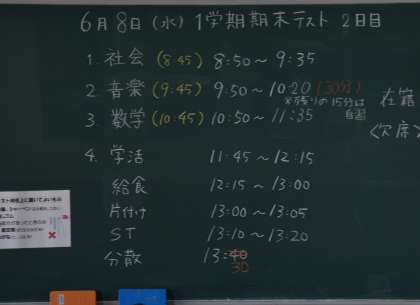 6月8日(水) 1学期期末テスト 2日目
1. 社会 (8:45) 8:50〜9:35
2. 音楽 (9:45) 9:50〜10:20 (30分)
※残りの15分は
自習
3. 数学 (10:45) 10:50〜11:35
4. 学活 11:45〜12:15
給食 12:15〜13:00
片付け 13:00〜13:05
ST 13:10〜13:20
分散 13:40
30
在籍
<欠席>